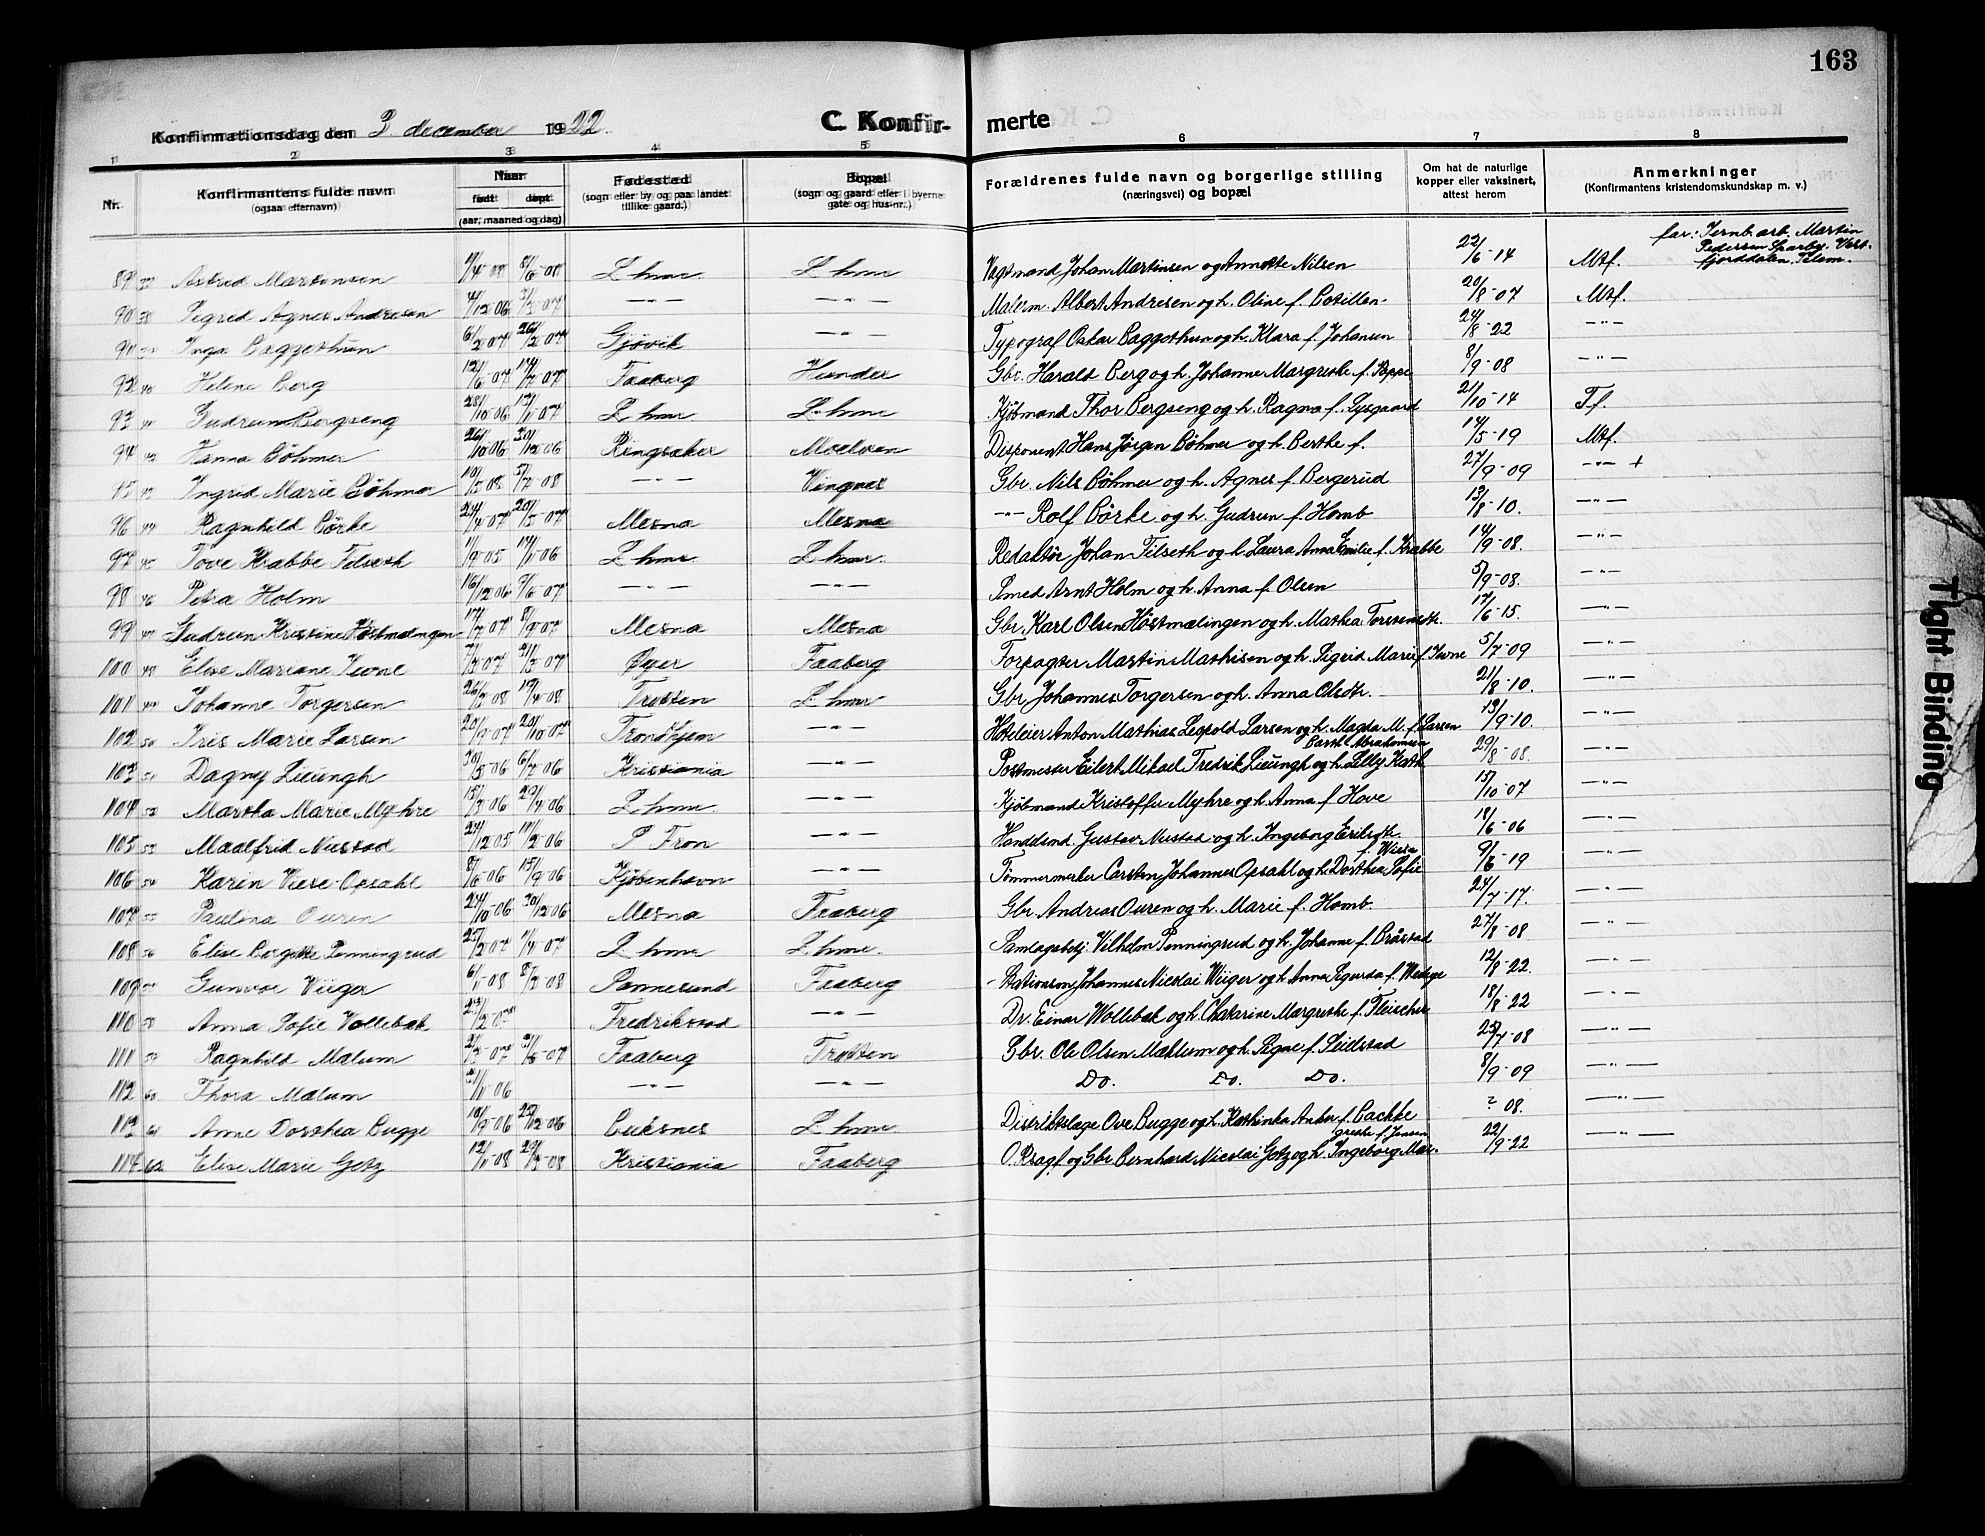 163
Konfirmationsdag den 3 december 1922.
C. Konfirmerte
1 2 3 4 5 6 7 8
Nr. Konfirmantens fulde navn (ogsaa efternavn) Naar født døpt (aar, maaned og dag) Fødested (sogn eller by og paa landet tillike gaard.) Bopæl (sogn og gaard eller i byerne gate og hus-nr.) Forældrenes fulde navn og borgerlige stilling (næringsvei) og bopæl Om hat de naturlige kopper eller vaksinert, attest herom Anmerkninger (Konfirmantens kristendomskundskap m. v.)
far: Jernb. arb. Martin
Pedersen Sparby. Vest-
fjorddalen, Telem.
89 37 Astrid Martinsen 1/4-08 8/6-08 L.hmr L.hmr Vagtmand Johan Martinsen og Annette Nilsen 22/6-14 Mtf.
90 38 Sigrid Agnes Andresen 4/12-06 -"- -"- Malerm. Albert Andresen og h. Oline f. 20/8-07 Mtf.
91 39 Inga Baggethun 6/2-07 26/2-07 Gjøvik -"- Typograf Oskar Baggethun og h. Klara f. Johansen 24/8-22 -"-
92 40 Helene Berg 12/6-07 14/7-07 Faaberg Hunder Gbr. Harald Berg og h. Johanne Margrethe f. Poppe 8/9-08 -"-
93 41 Gudrun Bergseng 28/10-06 L.hmr L.hmr Kjøbmand Thor Bergseng og h. Ragna f. Lysgaard 21/10-14 Tf.
94 42 Hanna Böhmer 26/10-06 30/12-06 Ringsaker Moelven Disponent Hans Jørgen Böhmer og h. Berthe f. 14/5-19 Mtf.
95 43 Ingrid Marie Böhmer 10/5-08 5/7-08 -"- Vingnes Gbr. Nils Böhmer og h. Agnes f. Bergerud 27/9-09 -"- +
96 44 Ragnhild Börke 24/4-07 20/5-07 Mesna Mesna -"- Rolf Börke og h. Gudrun f. Homb 13/8-10. -"-
97 45 Tove Krabbe Filseth 1/9-05 L.hmr. L.hmr. Redaktör Johan Filseth og h. Laura Anna Emilie f. Krabbe 14/9-08. -"-
98 46 Petra Holm 16/12-06 9/6-07 -"- -"- Smed Arnt Holm og h. Anna f. Olsen 5/9-08. -"-
99 47 Gudrun Kristine Höstmælingen 17/7-07 8/9-07 Mesna Mesna Gbr. Karl Olsen Höstmælingen og h. Mathea Torstensdtr. 17/6-15. -"-
100 48 Elise Mariane Jevne 7/3-07 21/5-07 Øyer Faaberg Forpagter Martin Mathisen og h. Sigrid Marie f. Jevne 5/7-09 -"-
101 49 Johanne Torgersen 26/2-08 17/4-08 Tretten L.hmr Gbr Johannes Torgersen og h. Anna Olsdtr. 21/8-10. -"-
102 50 Iris Marie Larsen 20/9-07 20/10-07 Trondhjem -"- Hoteleier Anton Mathias Leopold Larsen og h. Magda M. f. Larsen 13/9-10. -"-
103 51 Dagny Lieungh 30/5-06 6/7-06 Kristiania -"- Postmester Eilert Mikael Fredrik Lieungh og h. Lelly Kath. Abrahamsen 29/8-08. -"-
104 52 Martha Marie Myhre 15/3-06 L.hmr. -"- Kjöbmand Kristoffer Myhre og h. Anna f. Hove 15/10-07 -"-
105 53 Maalfrid Nustad 24/12-05 11/2-06 S. Fron -"- Handelsmd. Gustav Nustad og h. Ingeborg Eriksdtr. 18/6-06 -"-
106 54 Karin Viese-Opsahl 8/6-06 15/9-06 Kjöbenhavn -"- Tømmermerker Carsten Johannes Opsahl og h. Dorthea Sofie f. Wiese 9/6-19 -"-
107 55 Paulina Ouren 24/10-06 30/12-06 Mesna Faaberg Gbr. Andreas Ouren og h. Marie f. Homb. 24/7-17. -"-
108 56 Elise Borgitte Penningrud 25/2-07 1/4-07 L.hmr L.hmr. Samlagsbstj. Vilhelm Penningrud og h. Johanne f. Bråstad 27/8-08 -"-
109 57 Gunvor Wiiger 6/1-08 8/3-08 Sannesund Faaberg Stationsm. Johannes Nicolai Wiiger og h. Anna Sigurda f. Wedege 12/8-22. -"-
110 58 Anna Sofie Vollebæk Fredrikstad -"- Dr. Einar Wollebæk og h. Chatarine Margrethe f. Fleischer 18/8-22 -"-
111 59 Ragnhild Mælum 2/3-07 Faaberg Tretten Gbr. Ole Olsen Mælum og h. Signe f. Seielstad 25/7-08 -"-
112 60 Thora Mælum -"- -"- Do. Do. Do. 8/9-09 -"-
113 61 Anne Dorthea Bugge 10/9-06 25/12-06 Buksnes L.hmr Distriktslæge Ove Bugge og h. Kathinka Anker f. Backhe ? 08. -"-
114 62 Elise Marie Getz 12/1-08 29/3-08 Kristiania Faaberg O.Rsagf og Gbr. Bernhard Nicolai Getz og h. Ingeborg Mar-grethe f. Jensen 22/9-22 -"-
Tight Binding